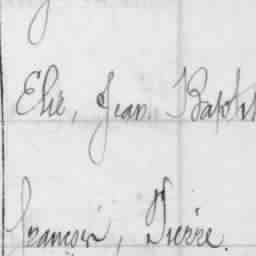 Elie, Jean Baptist
françois, Pierre.